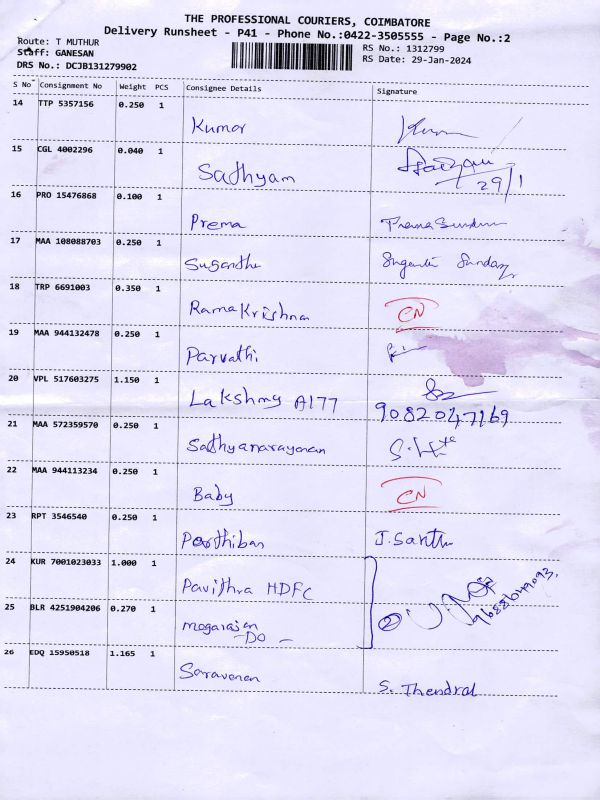 THE PROFESSIONAL COURIERS, COIMBATORE
Delivery Runsheet - P41 - Phone No.:0422-3505555 - Page No.:2
Route: T MUTHUR RS No.: 1312799
Staff: GANESAN RS Date: 29-Jan-2024
DRS No.: DCJB131279902
S No Consignment No Weight PCS Consignee Details Signature
14 TTP 5357156 0.250 1 Kumar
15 CGL 4002296 0.040 1 Sathyam
29/1
16 PRO 15476868 0.100 1 Prema
17 MAA 108088703 0.250 1 Suganthi
18 TRP 6691003 0.350 1 Rama Krishnan CN
19 MAA 944132478 0.250 1 Parvathi
20 VPL 517603275 1.150 1 Lakshmy A177
9082047169
21 MAA 572359570 0.250 1 Sathyanarayanan
22 MAA 944113234 0.250 1 Baby CN
23 RPT 3546540 0.250 1 Parthiban J. Santhi
24 KUR 7001023033 1.000 1 Pavithra HDFC
25 BLR 4251904206 0.270 1 Mogarajan 2
-DO-
26 EDQ 15950518 1.165 1 Saravanan S. Thendral